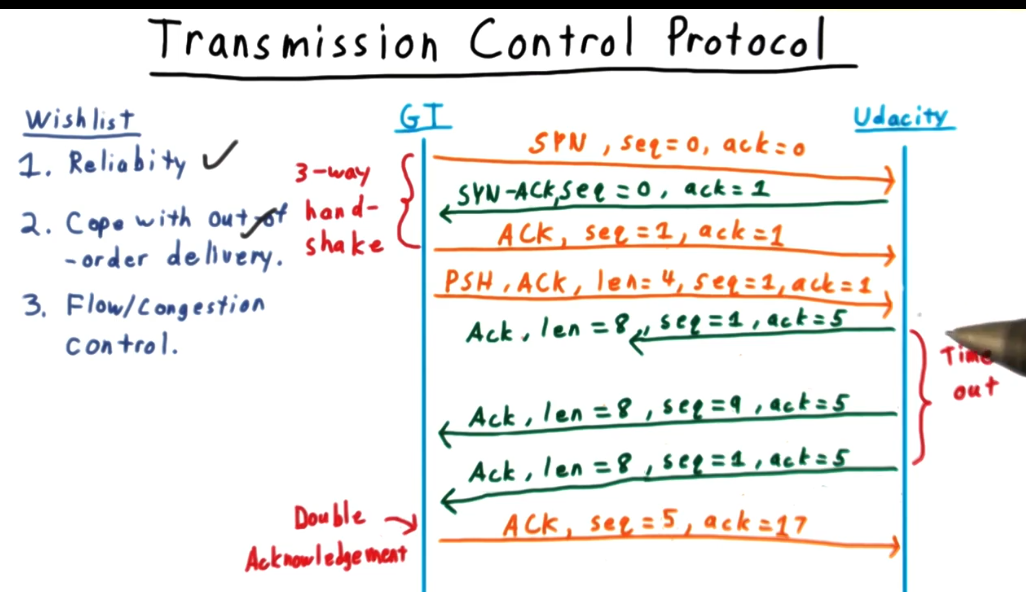 Transmission Control Protocol
Wishlist
1. Reliabity
2. Cope with out of
-order delivery.
3. Flow/Congestion
control.
GT
Udacity
3-way
hand-
shake
SYN, seq=0, ack=0
SYN-ACK, seq=0, ack=1
ACK, seq=1, ack=1
PSH, ACK, len=4, seq=1, ack=1
Ack, len=8, seq=1, ack=5
Time
out
Ack, len=8, seq=9, ack=5
Ack, len=8, seq=1, ack=5
Double
Acknowledgement
ACK, seq=5, ack=17